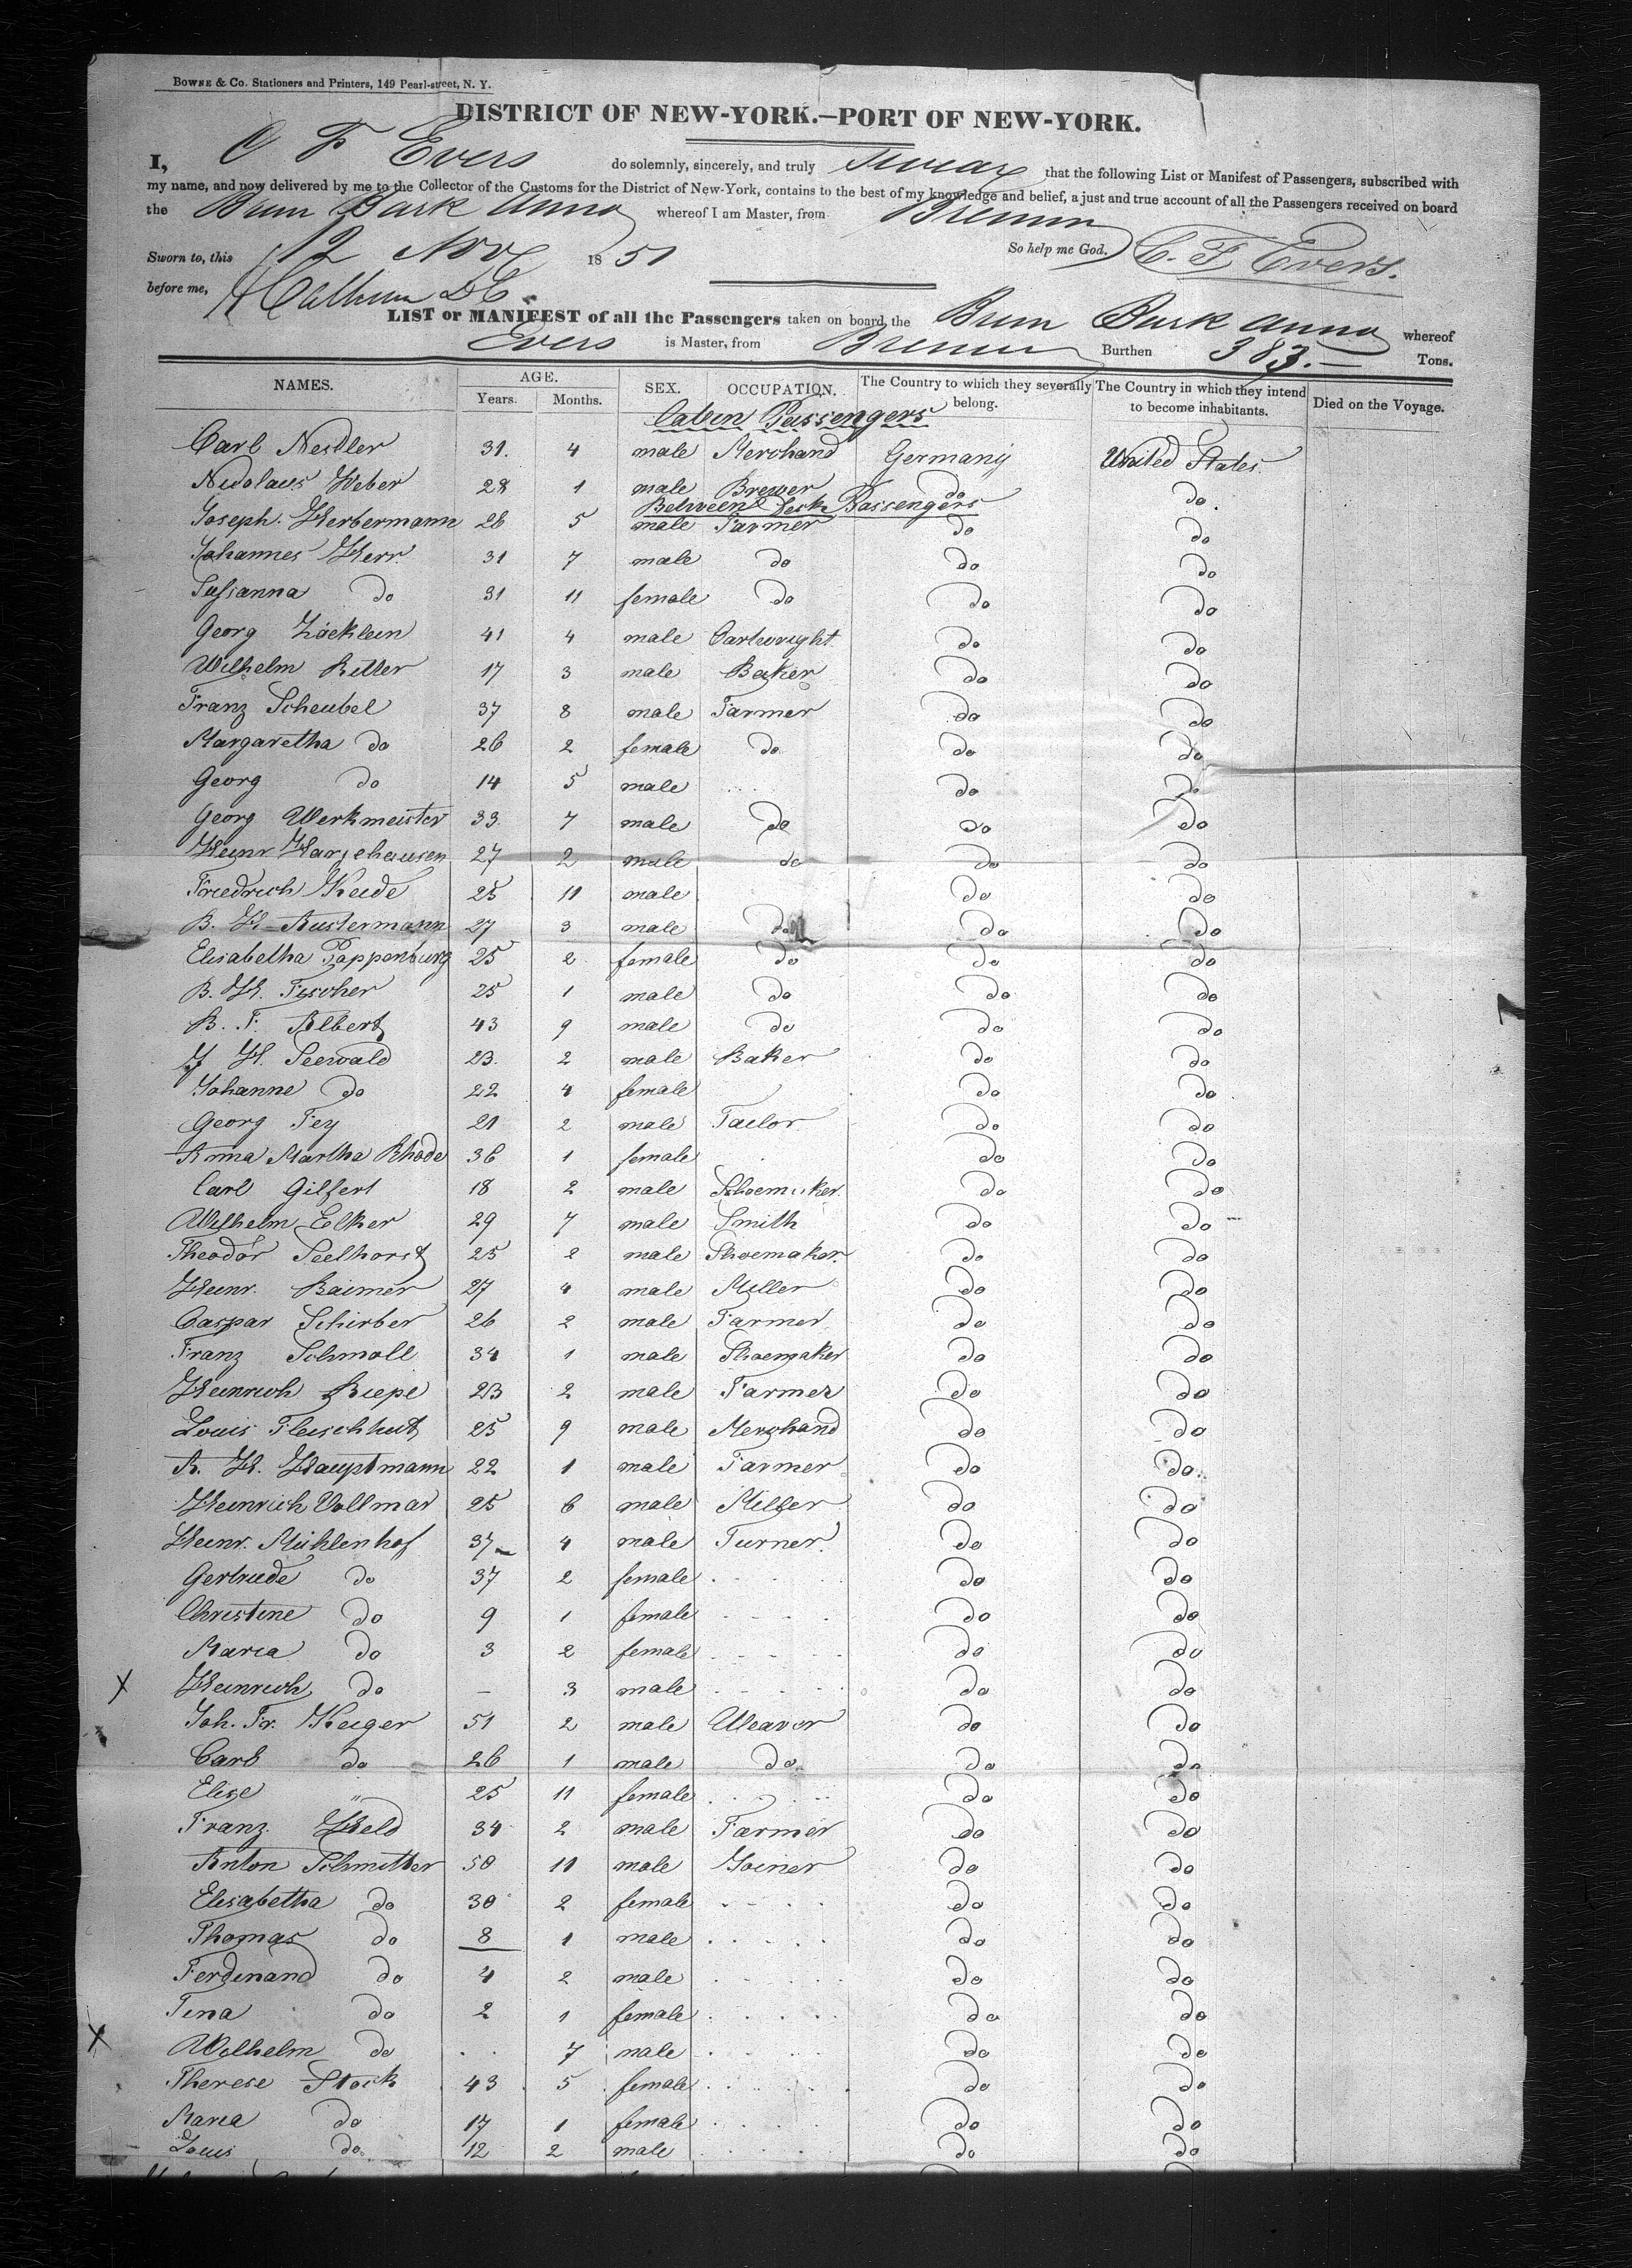 BOWNE & Co. Stationers and Printers, 149 Pearl-street, N. Y.
DISTRICT OF NEW-YORK.—PORT OF NEW-YORK.
I, C F Evers do solemnly, sincerely, and truly swear that the following List or Manifest of Passengers, subscribed with
my name, and now delivered by me to the Collector of the Customs for the District of New-York, contains to the best of my knowledge and belief, a just and true account of all the Passengers received on board
the Brem Bark Anna whereof I am Master, from Bremen
Sworn to, this 12 Nov 1851 So help me God. C. F. Evers.
before me,
LIST or MANIFEST of all the Passengers taken on board the Brem Bark Anna whereof
Evers is Master, from Bremen Burthen 383.— Tons.
NAMES. AGE. Years. Months. SEX. OCCUPATION. The Country to which they severally belong. The Country in which they intend to become inhabitants. Died on the Voyage.
Cabin Passengers
Carl Nestler 31. 4 male Merchand Germany United States
Nicolaus Weber 28 1 male Brewer do do
Between Deck Passengers
Joseph. Herbermann 26 5 male Farmer do do
Johannes Herr. 31 7 male do do do
Susanna do 31 11 female do do do
Georg 41 4 male Cartwright do do
Wilhelm Ritter 17 3 male Baker do do
Franz Scheubel 37 8 male Farmer do do
Margaretha do 26 2 female do do do
Georg do 14 5 male do do
Georg Werkmeister 33 7 male do do do
Heinr 27 2 male do do do
Friedrich 25 11 male do do
B. H. Austermann 27 3 male do do do
Elisabetha Pappenburg 25 2 female do do do
B. H. Fischer 25 1 male do do do
B. F. Albert 43 9 male do do do
J H. Seewald 23. 2 male Baker do do
Johanne do 22 4 female do do
Georg Fey 21 2 male Tailor do do
Anna Martha Rhode 36 1 female do do
Carl Gilfert 18 2 male Shoemaker. do do
Wilhelm Elker 29 7 male Smith do do
Theodor Seelhorst 25 2 male Shoemaker. do do
Heinr. Baimer 27 4 male Miller do do
Caspar Schirber 26 2 male Farmer do do
Franz Schmoll 34 1 male Shoemaker do do
Heinrich Riepe 23 2 male Farmer do do
Louis Fleischhut 25 9 male Merchand do do
A. H. Hauptmann 22 1 male Farmer do do
Heinrich Vollmar 25 6 male Miller do do
Heinr. Mühlenhof 37 4 male Turner. do do
Gertrude do 37 2 female do do
Christine do 9 1 female do do
Maria do 3 2 female do do
X Heinrich do – 3 male do do
Joh. Fr. 51 2 male Weaver do do
Carl do 26 1 male do do do
Elise " 25 11 female do do
Franz Held 34 2 male Farmer do do
Anton Schmitter 50 11 male Joiner do do
Elisabetha do 30 2 female do do
Thomas do 8 1 male do do
Ferdinand do 4 2 male do do
Tina do 2 1 female do do
X Wilhelm do 7 male do do
Therese Stock 43 5 female do do
Maria do 17 1 female do do
Louis do 12 2 male do do